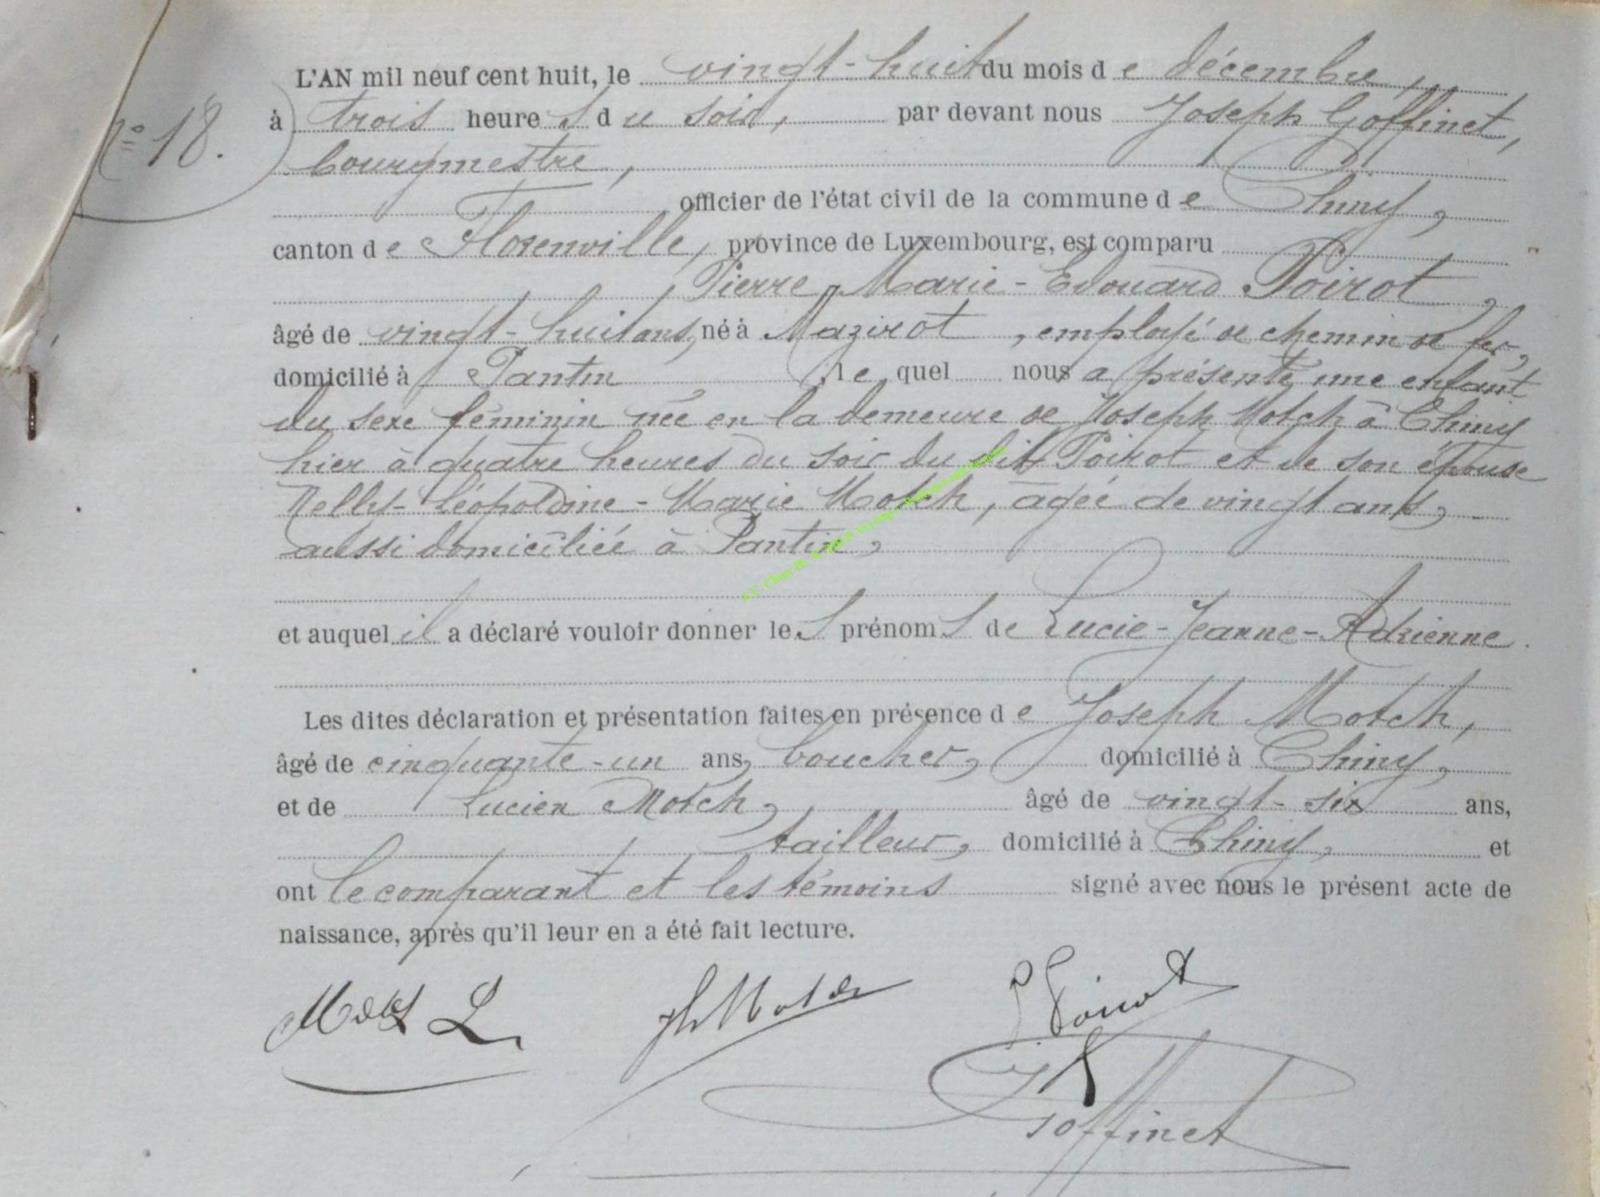 L'AN mil neuf cent huit, le vingt-huit du mois de décembre,
n° 18.
à trois heures du soir, par devant nous Joseph Goffinet,
bourgmestre,
officier de l'état civil de la commune de Chiny,
canton de Florenville, province de Luxembourg, est comparu
Pierre-Marie-Edouard Poirot,
âgé de vingt-huit ans, né à Mazirot, employé de chemin de fer,
domicilié à Pantin, lequel nous a présenté une enfant
du sexe féminin née en la demeure de Joseph Motch à Chiny
hier à quatre heures du soir du dit Poirot et de son épouse
Nelly-Léopoldine-Marie Motch, âgée de vingt ans,
aussi domiciliée à Pantin,
et auquel il a déclaré vouloir donner les prénoms de Lucie-Jeanne-Adrienne.
Les dites déclaration et présentation faites en présence de Joseph Motch,
âgé de cinquante-un ans, boucher, domicilié à Chiny,
et de Lucien Motch, âgé de vingt-six ans,
tailleur, domicilié à Chiny, et
ont le comparant et les témoins signé avec nous le présent acte de
naissance, après qu'il leur en a été fait lecture.
Motch L. Jh Motch P Poirot
J Goffinet